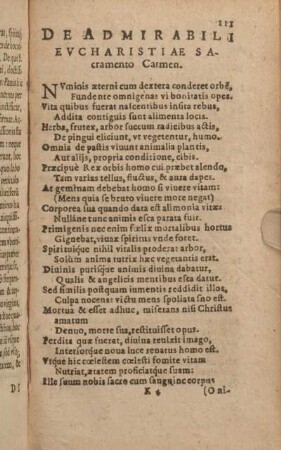 111
DE ADMIRABILI
EVCHARISTIAE SA-
cramento Carmen.
NVminis æterni cum dextera conderet orbẽ,
Fundente omnigenas vi bonitatis opes.
Vita quibus fuerat nascentibus insita rebus,
Addita contiguis sunt alimenta locis.
Herba, frutex, arbor succum radicibus actis,
De pingui eliciunt, vt vegetentur, humo.
Omnia de pastis viuunt animalia plantis,
Aut alijs, propria conditione, cibis.
Præcipuè Rex orbis homo cui præbet alendo,
Tam varias tellus, fluctus, & aura dapes.
At geminam debebat homo si viuere vitam:
(Mens quia se bruto viuere more negat)
Corporea sua quando data est alimonia vitæ
Nullãne tunc animis esca parata fuit.
Primigenis nec enim fœlix mortalibus hortus
Gignebat, viuax spiritus vnde foret.
Spirituíque nihil vitalis proderat arbor,
Solùm anima tutrix hæc vegetantis erat.
Diuinis purisq́ue animis diuina dabatur,
Qualis & angelicis mentibus esca datur.
Sed similis postquam iumentis reddidit illos,
Culpa nocens: victu mens spoliata suo est.
Mortua & esset adhuc, miserans nisi Christus
amatum
Denuo, morte sua, restituisset opus.
Perdita quæ fuerat, diuina reuixit imago,
Interiorq́ue noua luce renatus homo est.
Vtq́ue hic cœlestem cœlesti fomite vitam
Nutriat, ætatem proficiatq́ue suam:
Ille suum nobis sacro cum sanguine corpus
K 4 (Oni-